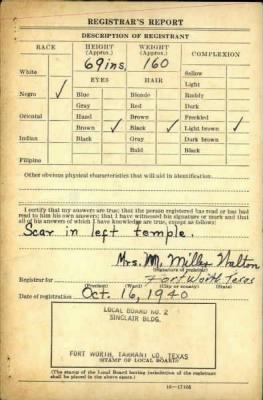 REGISTRAR'S REPORT
DESCRIPTION OF REGISTRANT
RACE HEIGHT (Approx.) WEIGHT (Approx.) COMPLEXION
69 ins. 160
White Sallow
EYES HAIR Light
Negro ✓ Blue Blonde Ruddy
Gray Red Dark
Oriental Hazel Brown Freckled
Brown ✓ Black ✓ Light brown ✓
Indian Black Gray Dark brown
Bald Black
Filipino
Other obvious physical characteristics that will aid in identification
I certify that my answers are true; that the person registered has read or has had
read to him his own answers; that I have witnessed his signature or mark and that
all of his answers of which I have knowledge are true, except as follows:
Scar in left temple.
Mrs. M. Miller Walton
(Signature of registrar)
Registrar for Fort Worth Texas
(Precinct) (Ward) (City or county) (State)
Date of registration Oct. 16, 1940
LOCAL BOARD NO. 2
SINCLAIR BLDG.
FORT WORTH, TARRANT CO. TEXAS
(STAMP OF LOCAL BOARD)
(The stamp of the Local Board having jurisdiction of the registrant
shall be placed in the above space.)